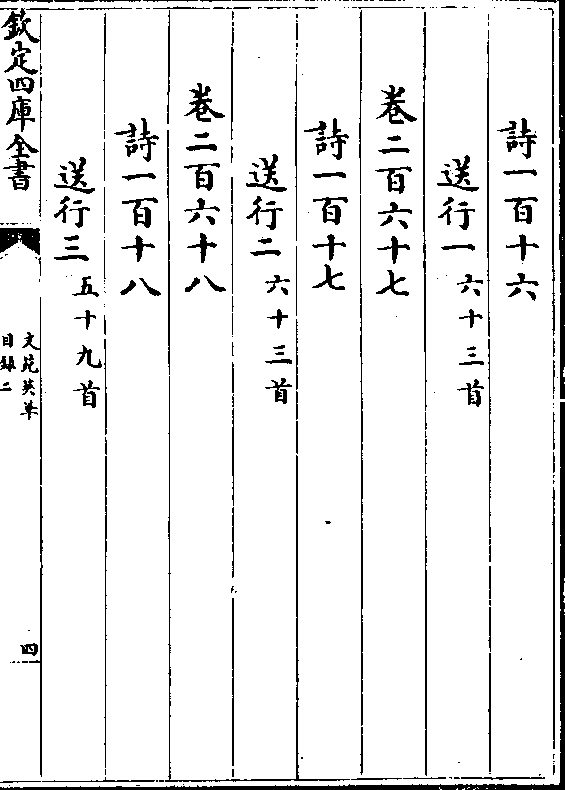 詩一百十六
送行一六十三首
卷二百六十七
詩一百十七
送行二六十三首
卷二百六十八
詩一百十八
送行三五十九首
欽定四庫全書
文苑英華
目錄二
四